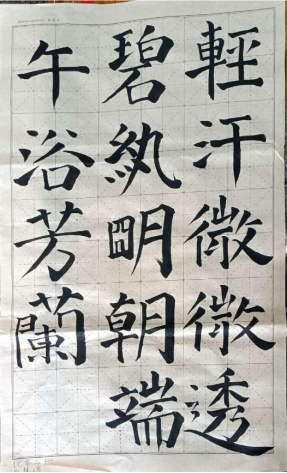 輕汗微微透
碧紈明朝端
午浴芳蘭